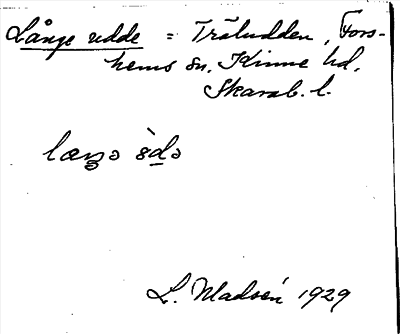 Långe udde = Träludden, Fors-
hems sn, Kinne hd,
Skarab. l.
L. Madsén 1929